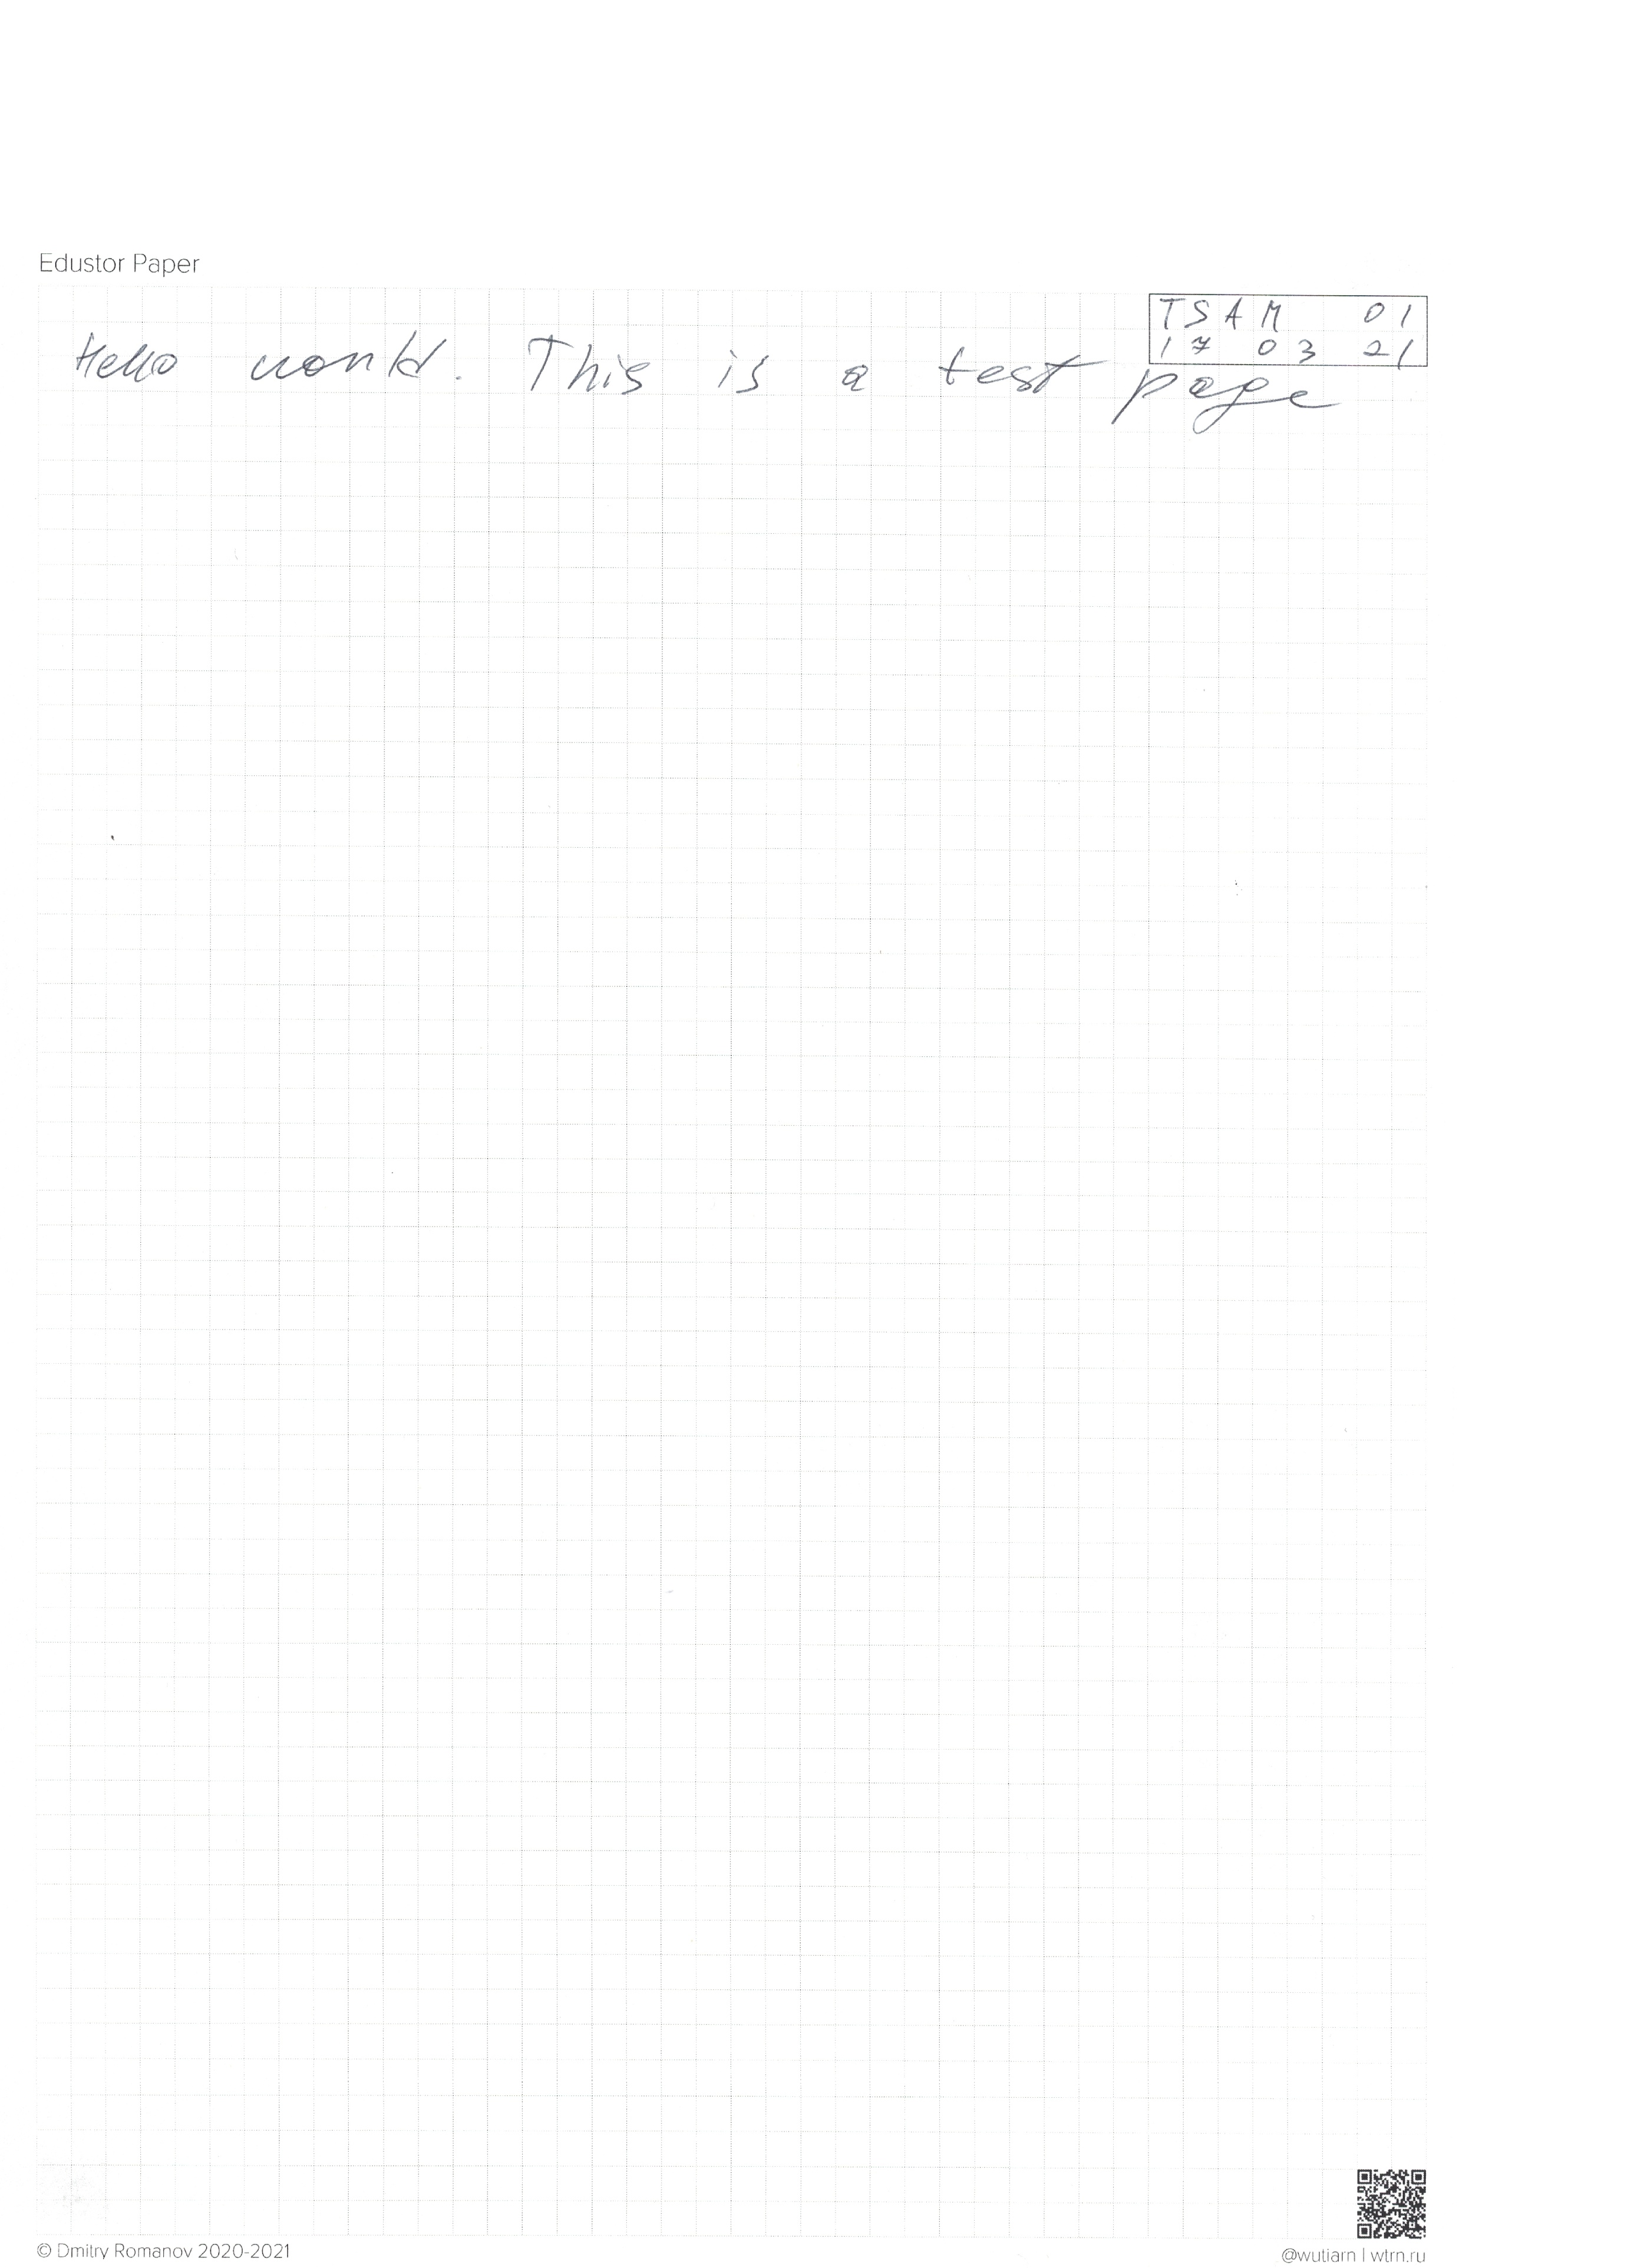 Edustor Paper
TSAM 01
17 03 21
Hello world. This is a test page
© Dmitry Romanov 2020-2021
@wutiarn | wtrn.ru